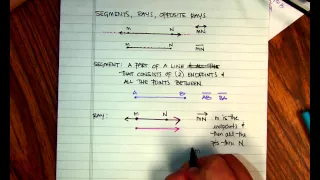 SEGMENTS, RAYS, OPPOSITE RAYS
M N MN
MN
SEGMENT: A PART OF A LINE
THAT CONSISTS OF (2) ENDPOINTS &
ALL THE POINTS BETWEEN.
A B AB BA
RAY: M N MN
M is the
endpoint &
then all the
pts thru N.